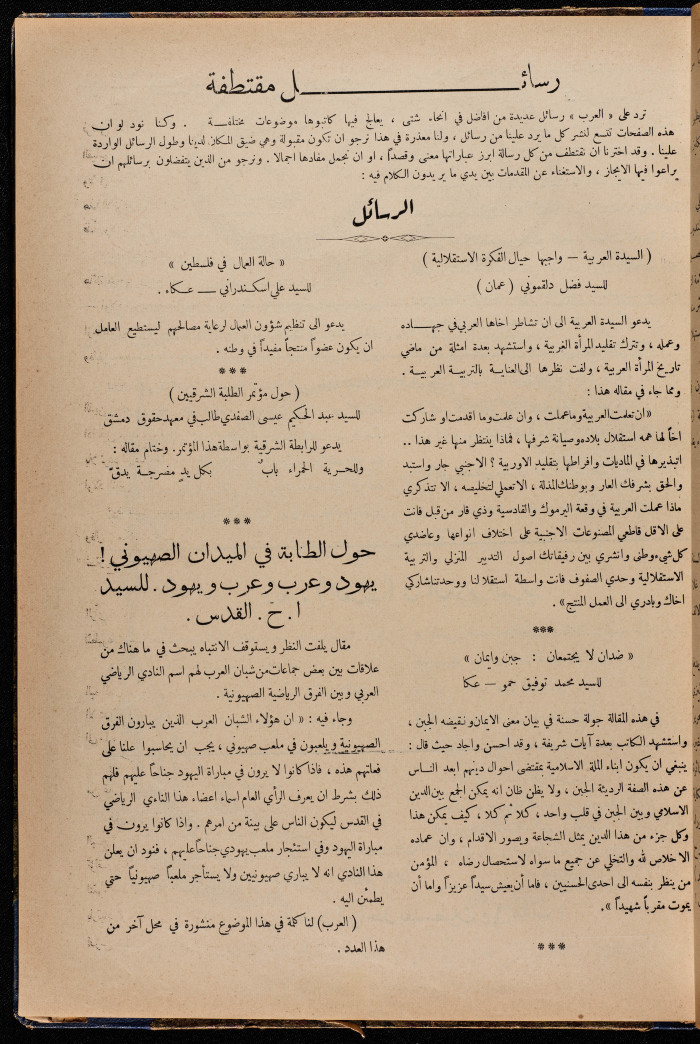 رسائل مقتطفة
ترد على « العرب » رسائل عديدة من افاضل في انحاء شتى ، يعالج فيها كاتبوها موضوعات مختلفة . وكنا نود لو ان
هذه الصفحات تتسع لنشر كل ما يرد علينا من رسائل ، ولنا معذرة في هذا نرجو ان تكون مقبولة وهي ضيق المكان لدينا وطول الرسائل الواردة
علينا . وقد اخترنا ان نقتطف من كل رسالة ابرز عباراتها معنى وقصداً ، او ان نجمل مفادها اجمالا . ونرجو من الذين يتفضلون برسائلهم ان
يراعوا فيها الايجاز ، والاستغناء عن المقدمات بين يدي ما يريدون الكلام فيه :
الرسائل
( السيدة العربية — واجبها حيال الفكرة الاستقلالية )
للسيد فضل دلقموني ( عمان )
يدعو السيدة العربية الى ان تشاطر اخاها العربي في جهاده
وعمله ، وتترك تقليد المرأة الغربية ، واستشهد بعدة امثلة من ماضي
تاريخ المرأة العربية ، ولفت نظرها الى العناية بالتربية العربية .
ومما جاء في مقاله هذا :
« ان تعلمت العربية وما عملت ، وان علمت وما اقدمت او شاركت
اخاً لها همه استقلال بلاده وصيانة شرفها ، فماذا ينتظر منها غير هذا ..
اتبذيرها في الماديات وافراطها بتقليد الاوربية ؟ الاجنبي جار واستبد
والحق بشرفك العار وبوطنك المذلة ، الا تعملي لتخليصه ، الا تتذكري
ماذا عملت العربية في وقعة اليرموك والقادسية وذي قار من قبل فانت
على الاقل قاطعي المصنوعات الاجنبية على اختلاف انواعها وعاضدي
كل شيء وطني وانشري بين رفيقاتك اصول التدبير المنزلي والتربية
الاستقلالية وحدي الصفوف فانت واسطة استقلالنا ووحدتنا شاركي
اخاك وبادري الى العمل المنتج » .
***
« ضدان لا يجتمعان : جبن وايمان »
للسيد محمد توفيق حمو — عكا
في هذه المقالة جولة حسنة في بيان معنى الايمان ونقيضه الجبن ،
واستشهد الكاتب بعدة آيات شريفة ، وقد احسن واجاد حيث قال :
ينبغي ان يكون ابناء الملة الاسلامية بمقتضى احوال دينهم ابعد الناس
عن هذه الصفة الرديئة الجبن ، ولا يظن ظان انه يمكن الجمع بين الدين
الاسلامي وبين الجبن في قلب واحد ، كلا ثم كلا ، كيف يمكن هذا
وكل جزء من هذا الدين يمثل الشجاعة ويصور الاقدام ، وان عماده
الاخلاص لله والتخلي عن جميع ما سواه لاستحصال رضاه ، المؤمن
من ينظر بنفسه الى احدى الحسنيين ، فاما أن يعيش سيداً عزيزاً واما أن
يموت مقرباً شهيداً » .
***
« حالة العمال في فلسطين »
للسيد علي اسكندراني — عكاء .
يدعو الى تنظيم شؤون العمال لرعاية مصالحهم ليستطيع العامل
ان يكون عضواً منتجاً مفيداً في وطنه .
***
( حول مؤتمر الطلبة الشرقيين )
للسيد عبد الحكيم عيسى الصفدي طالب في معهد حقوق دمشق
يدعو للرابطة الشرقية بواسطة هذا المؤتمر. وختام مقاله :
وللحرية الحمراء باب بكل يد مضرجة يدق
***
حول الطابة في الميدان الصهيوني !
يهود وعرب وعرب ويهود . للسيد
ا . ح . القدس .
مقال يلفت النظر ويستوقف الانتباه يبحث في ما هناك من
علاقات بين بعض جماعات من شبان العرب لهم اسم النادي الرياضي
العربي وبين الفرق الرياضية الصهيونية .
وجاء فيه : « ان هؤلاء الشبان العرب الذين يبارون الفرق
الصهيونية ويلعبون في ملعب صهيوني ، يجب ان يحاسبوا علنا على
فعلتهم هذه ، فاذا كانوا لا يرون في مباراة اليهود جناحاً عليهم فلهم
ذلك بشرط ان يعرف الرأي العام اسماء اعضاء هذا النادي الرياضي
في القدس ليكون الناس على بينة من امرهم . واذا كانوا يرون في
مباراة اليهود وفي استئجار ملعب يهودي جناحاً عليهم ، فنود ان يعلن
هذا النادي انه لا يباري صهيونيين ولا يستأجر ملعباً صهيونياً حتى
يطمئن اليه .
( العرب ) لنا كلمة في هذا الموضوع منشورة في محل آخر من
هذا العدد .